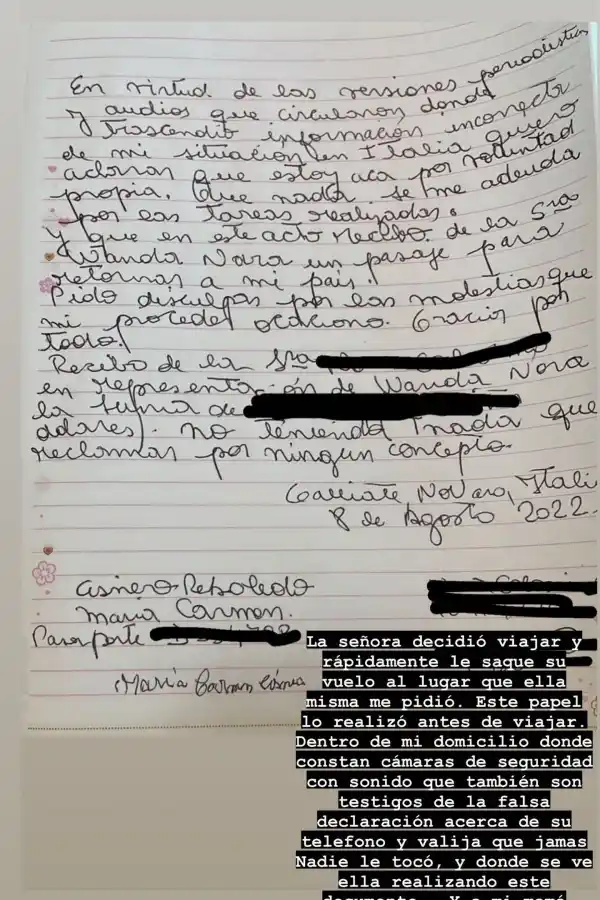 En virtud de las versiones periodisticas
y audios que circularon donde
Trascendió información incorrecta
de mi situación en Italia quiero
aclarar que estoy aca por voluntad
propia. Que nada se me adeuda
por las Tareas realizadas.
y que en este acto recibo de la Sra
Wanda Nara un pasaje para
retornar a mi pais.
Pido disculpas por las molestias que
mi proceder ocaciono. Gracias por
todo.
Recibo de la Sra
en representación de Wanda Nara
la suma de
dolares). no teniendo nada que
reclamar por ningun concepto.
Galliate Novara, Itali
8 de Agosto 2022.
Cisnero Rebolledo
Maria Carmen.
Pasaporte
Maria Carmen Cisnero
La señora decidió viajar y
rápidamente le saque su
vuelo al lugar que ella
misma me pidió. Este papel
lo realizó antes de viajar.
Dentro de mi domicilio donde
constan cámaras de seguridad
con sonido que también son
testigos de la falsa
declaración acerca de su
telefono y valija que jamas
Nadie le tocó, y donde se ve
ella realizando este